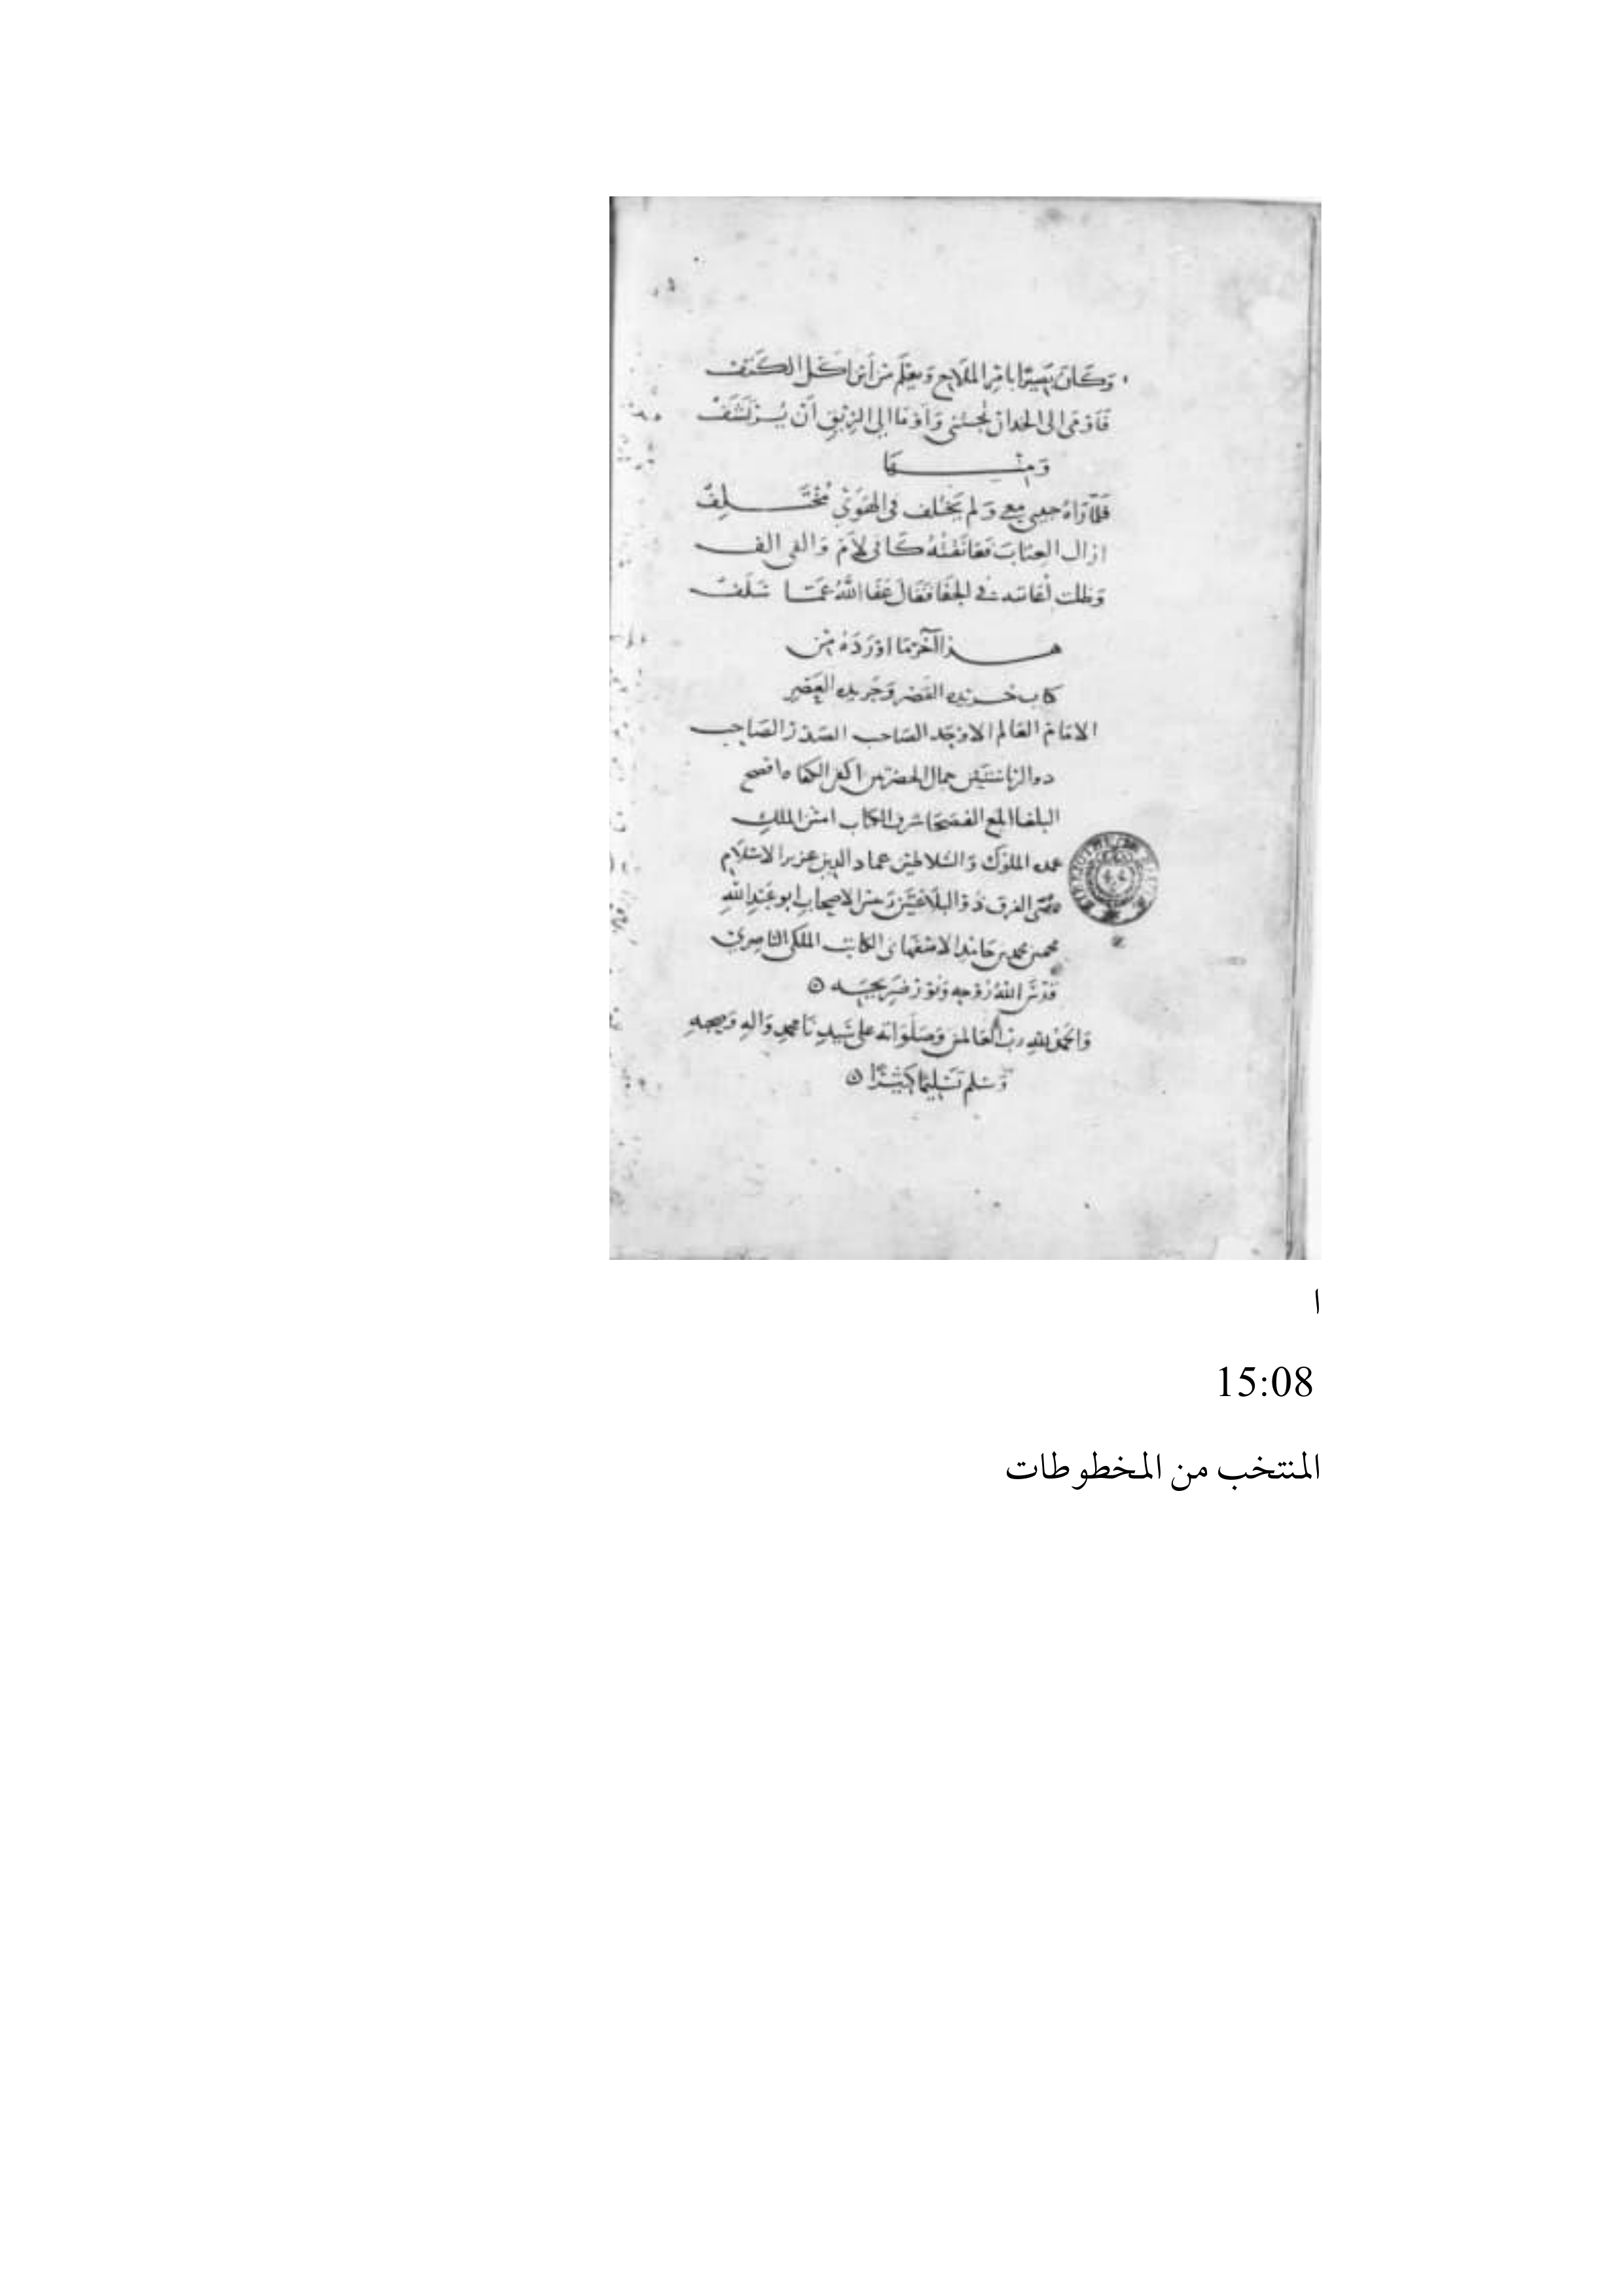 وَكَانَ بَصِيرًا بامْرِ المِلَاحِ وَيعْلَم مِنْ أَيْنَ اكل الكَتِفْ
فَأَوْمَى الى الخدان يُجْتَنى وَأَوْمَا إلى الرِّيْقِ أَنْ يُرْتَشَفْ
وَمِنْهَا
فَلمَّا رَاهُ جمعى مَعِي وَلم يَختلف فى الهَوَى مُخْتَلِفْ
ازال العِتَابَ فَعَانَقْتُهُ كَانى لَامٌ وَالفى الف
وَظلت اُعَاتبه فى الجَفَا فَقَالَ عَفَا اللهُ عَمَّا سَلَفْ
هذا آخَرُ مَا اوْرَدَهُ مِنْ
كتاب خريده القَصْر وَجَريده العَصْر
الامَامُ العَالم الاوْحَد الصَاحب الصَدْرُ الصَاحِب
ذو الرئاستَيْن جمال الحضرتين اكفى الكفاه افصح
البلغا المع الفصَحَا شرف الكتاب امين الملك
عمده الملوك وَالسَّلاطين عماد الدين عزيز الاسْلَام
الفرق ذُو البَلَاغَتَيْن الاصحاب ابو عَبْدِ اللهِ
محمد بن محمد بن حَامدٍ الاصْفهَانى الكاتب الملكى الناصرى
قَدَّسَ اللهُ رُوْحه وَنَوَّر ضَرِيحَه ه
وَالحَمْدُ للهِ ربّ العَالمين وَصَلَوَاته على سَيدِنَا محمدٍ وَالهِ وَصحبهِ
وَسَلم تَسْلِيمًا كَثِيْرًا ه
ا
15:08
المنتخب من المخطوطات